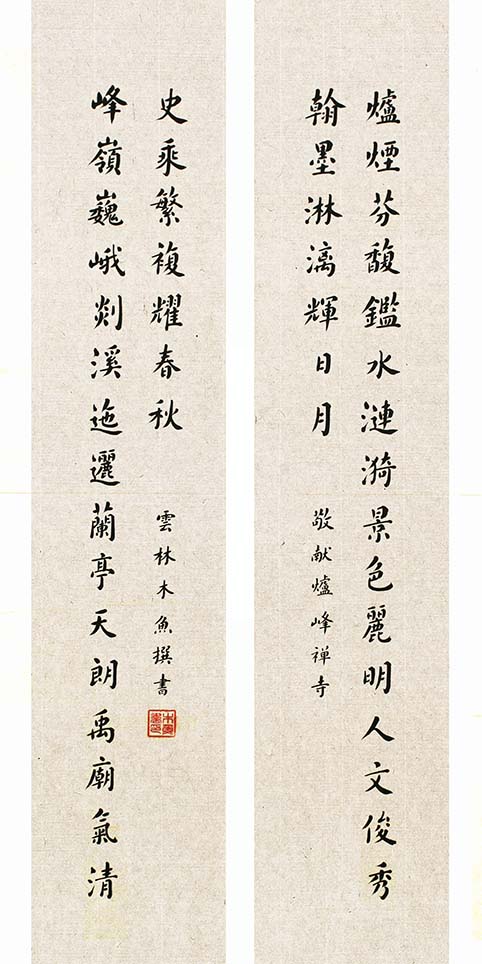 爐煙芬馥鑑水漣漪景色麗明人文俊秀
翰墨淋漓輝日月
敬献爐峰禪寺
峰嶺巍峨剡溪迤邐蘭亭天朗禹廟氣清
史乘繁複耀春秋
雲林木魚撰書